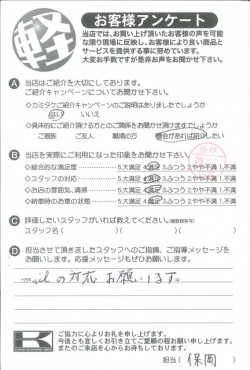 軽
お客様アンケート
当店では、お買い上げ頂いたお客様の声を可能な限り現場に反映し、お客様により良い商品とサービスを提供する事に努めています。
大変お手数ですが是非お声をお聞かせ下さい。
A 当店はご紹介を大切にしております。
ご紹介キャンペーンについてお聞かせ下さい。
◇カミタケご紹介キャンペーンのご説明はありましたでしょうか
はい いいえ
◇具体的にご紹介頂ける方とのご関係をお聞かせ頂けますでしょうか
ご親族 ご友人 職場の方 機会があれば紹介したい
B 当店を実際にご利用になった印象をお聞かせ下さい。
◇総合的な満足度 5.大満足 4.満足 3.ふつう 2.やや不満 1.不満
◇スタッフの対応 5.大満足 4.満足 3.ふつう 2.やや不満 1.不満
◇お店の雰囲気、清掃 5.大満足 4.満足 3.ふつう 2.やや不満 1.不満
◇納車時のお車の状態 5.大満足 4.満足 3.ふつう 2.やや不満 1.不満
C 評価したいスタッフがいれば教えてください。(複数回答可)
スタッフ名( )( )( )
D 担当させて頂きましたスタッフへのご指摘、ご指導メッセージをお願いします。応援メッセージもぜひお願いします。
の対応お願いします。
K
ご協力に心よりお礼を申し上げます。
今後とも宜しくお引き立てご愛顧の程お願い申し上げます。
またのご来店を心からお待ちしております。
担当( 保岡 )